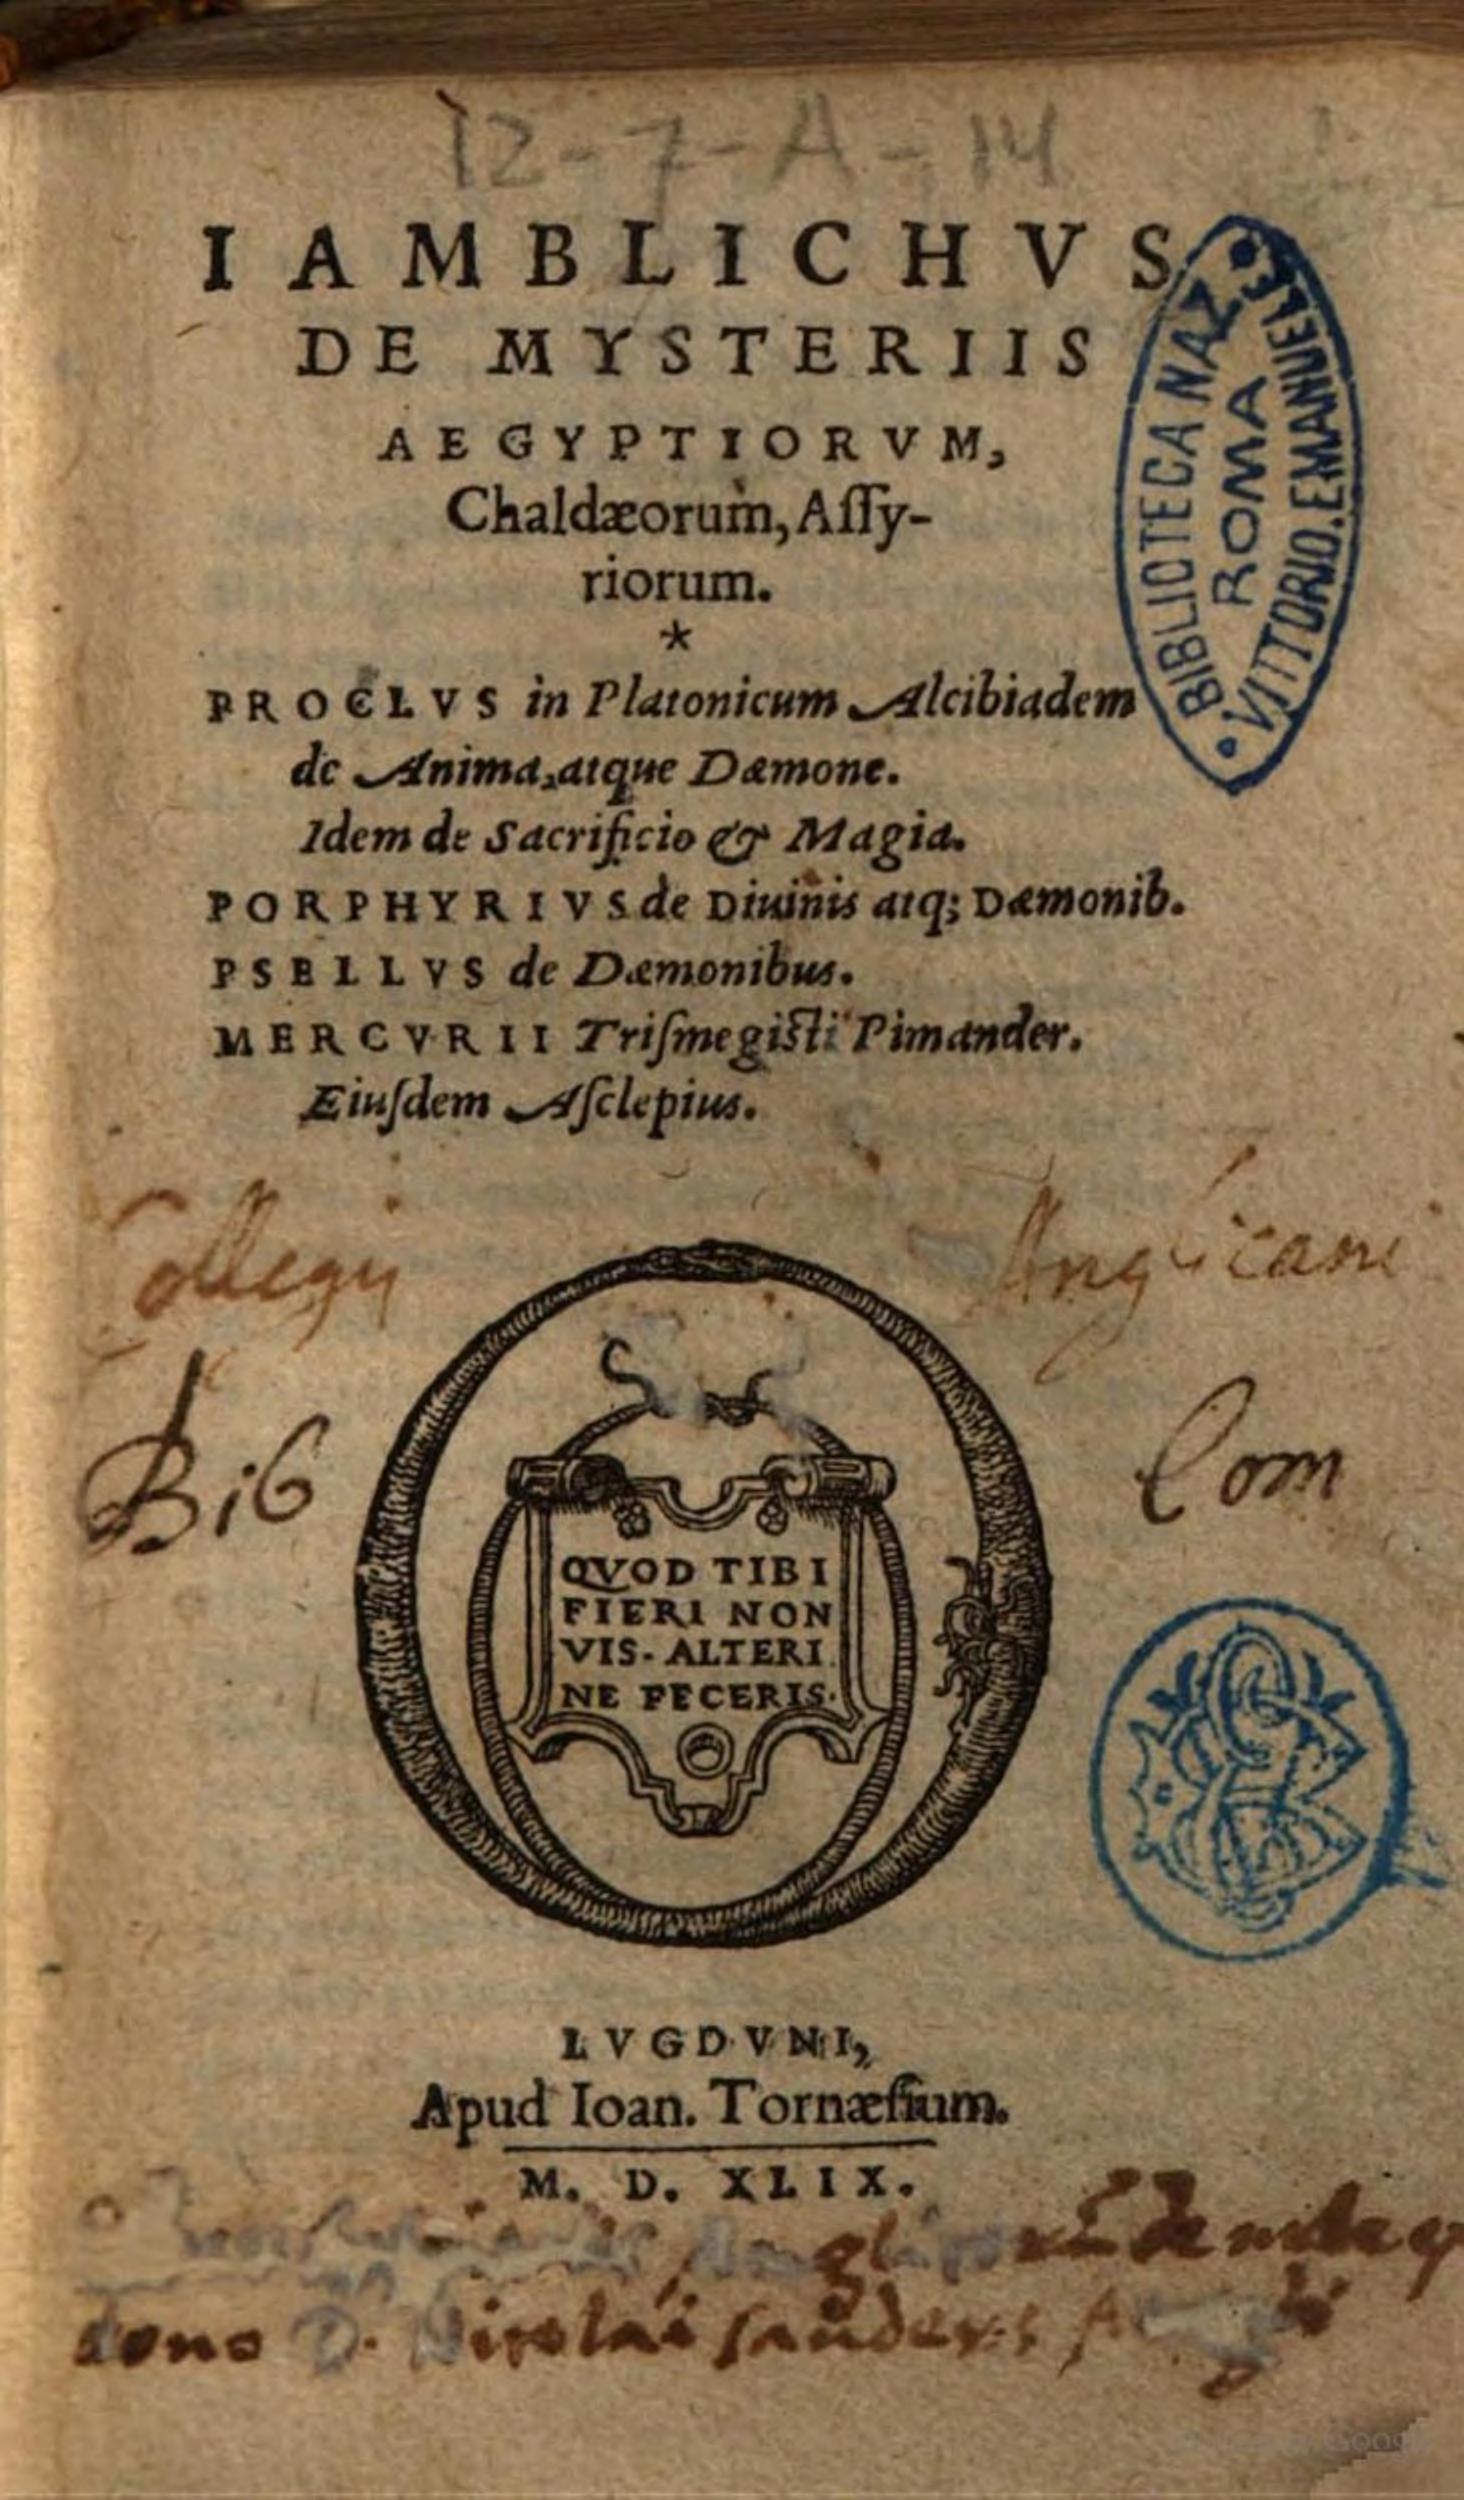 12-7-A-14
IAMBLICHVS
DE MYSTERIIS
AEGYPTIORVM,
Chaldæorum, Aſſy-
riorum.
*
PROCLVS in Platonicum Alcibiadem
de Anima, atque Dæmone.
Idem de Sacrificio & Magia.
PORPHYRIVS de Diuinis atq; Dæmonib.
PSELLVS de Dæmonibus.
MERCVRII Triſmegiſti Pimander.
Eiuſdem Aſclepius.
BIBLIOTECA NAZ.
ROMA
VITTORIO.EMANUELE
Collegij Anglicani
Bib Com
QVOD TIBI
FIERI NON
VIS. ALTERI
NE FECERIS.
LVGDVNI,
Apud Ioan. Tornæſium.
M. D. XLIX.
dono D. Nicolai ſanderi